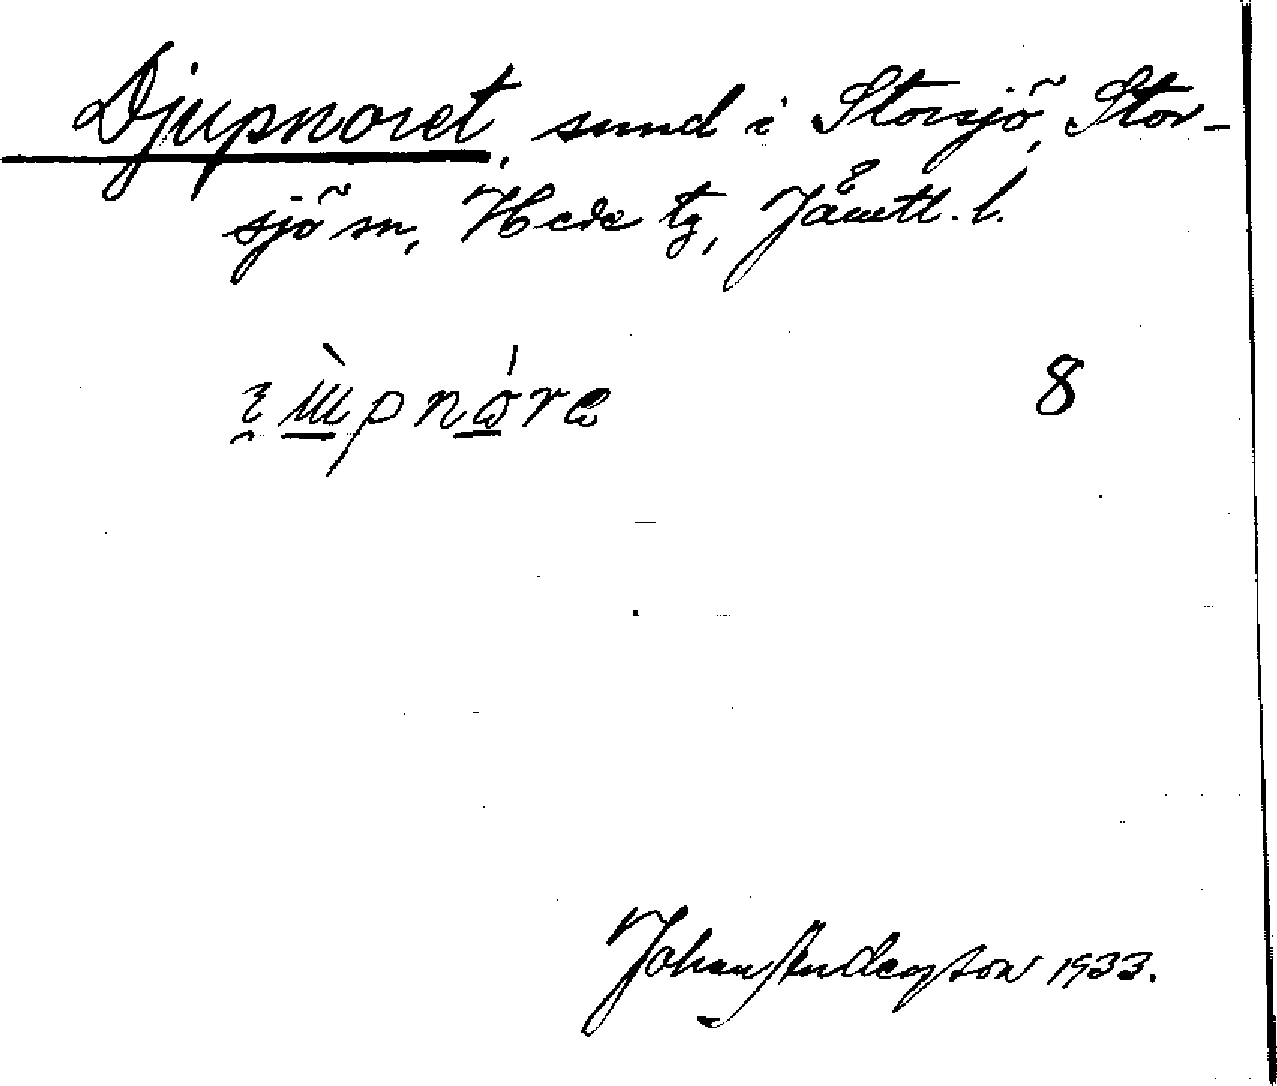 Djupnoret, sund i Storsjö, Stor-
sjö sn, Hede tg, Jämtl. l.
8
Johan Anderson 1933.